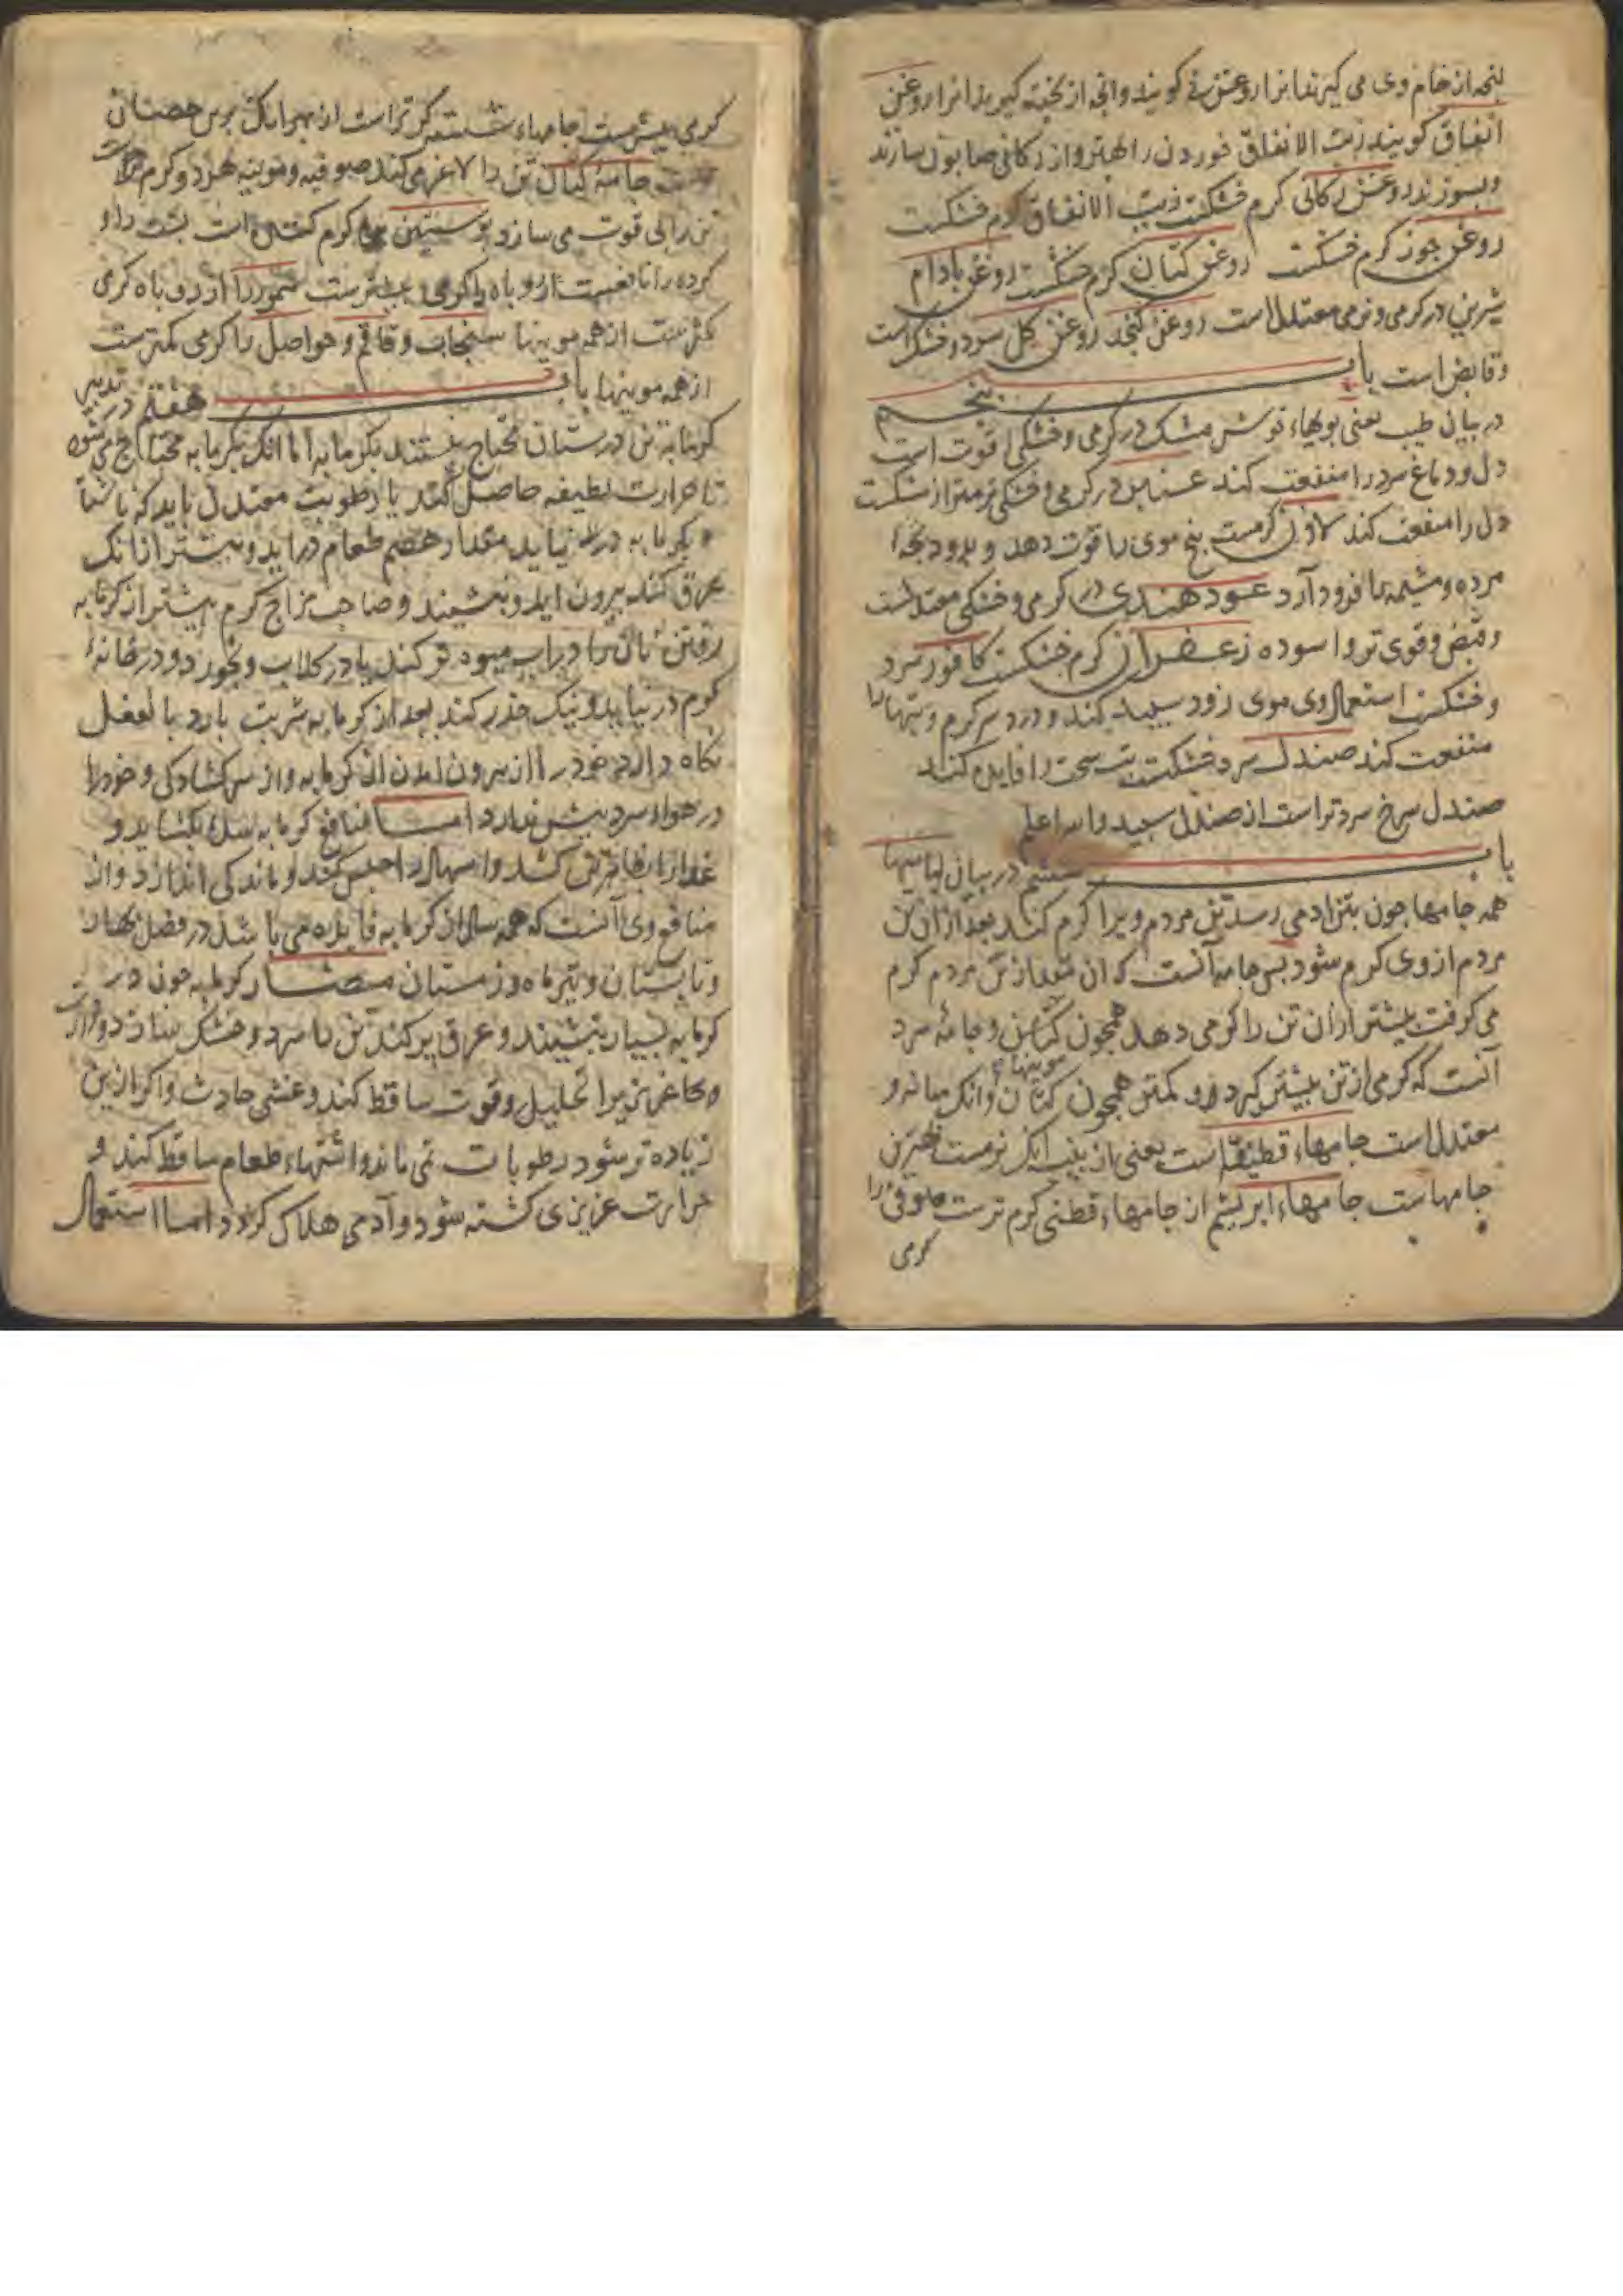 انچه از خام وی می گیرند انرا روغن زیت گویند و انچه از پخته گیرند انرا روغن
انفاق گویند زیت الانفاق خوردن را بهتر و از رکابی صابون سازند
و بسوزند روغن رکابی گرم خشکست زیت الانفاق گرم خشکست
روغن جوز گرم خشکست روغن کتان گرم خشکست روغن بادام
شیرین در گرمی و نرمی معتدل است روغن کنجد روغن گل سرد و خشک است
و قابض است باب پنجم
در بیان طیب یعنی بویهاء خوش مشک در گرمی و خشکی قوت است
دل و دماغ سرد را منفعت کند عنبر در گرمی و خشکی نرمتر از مشکست
دل را منفعت کند لادن گرمست بیخ موی را قوت دهد و بدود بچه
مرده و مشیمه را فرود آرد عود هندی در گرمی و خشکی معتدلست
و قبض وقوی تر و اسوده زعفران گرم خشکست کافور سرد
و خشکست استعمال وی موی زود سپید کند و درد سر گرم و تبها را
منفعت کند صندل سرد خشکست تب سخت را فایده کند
صندل سرخ سردتر است از صندل سپید والله اعلم
باب ششم در بیان لباسها
همه جامها چون بتن ادمی رسد تن مردم ویرا گرم کند بعد از ان تن
مردم از وی گرم شود پس جامه آنست که ان مقدار از تن مردم گرم
می گرفت بیشتر از ان تن را گرمی دهد همچون کتان و جامهٔ سرد
موینهاء
آنست که گرمی از تن بیشتر گیرد و کمتر همچون کتان و انک میانه و
معتدل است جامهاء قطیفه است یعنی از پنبه انک نرمست بهترین
جامهاست جامهاء ابریشم از جامهاء قطنی گرم ترست صوفی را
گرمی
گرمی بیشترست جامهاء شسته گرم تر است از بهر انک
جامهٔ کتان تن را لاغر می کند صوفیه و موینه هر دو گرم
تن را بی قوت می سازد پوستین گرم است پشت را و
کرده را نافعست از روباه را گرمی بیشترست سمور را از روباه گرمی
کمترست از همه موینها سنجاب و قاقم و حواصل را گرمی کمترست
از همه موینها باب هفتم در تدبیر
گرمابه تن درستان محتاج نیستند بگرمابه اما انک بگرمابه محتاج می شود
تا حرارت لطیفه حاصل کند یا رطوبت معتدل باید که ناشتا
بگرمابه در نیاید مقدار هضم طعام دراید و بیشتر از انک
عرق کند بیرون اید و بنشیند و صاحب مزاج گرم بیشتر از گرمابه
رفتن نان را در اب میوه تر کند یا در گلاب و بخورد و در خانهٔ
گرم در نیاید و نیک حذر کند بعد از گرمابه شربت بارد بالفعل
نکاه دارد خود را از بیرون امدن از گرمابه و از سر کشادگی و خود را
در هواء سرد پیش ندارد اما منافع گرمابه سده بکشاید و
غذا را بظاهر تن کشد و اسهال را حبس کند و ماندگی اندازد و از
منافع وی آنست که همه سال از گرمابه فایده می باشد در فصل بهار
و تابستان و تیرماه و زمستان مضار گرمابه چون در
گرمابه بسیار بنشیند و عرق پر کند تن را سرد و خشک سازد و حرارت
غریزی را تحلیل و قوت ساقط کند و غشی حادث و اگر ازین
زیاده تر شود رطوبات نمی ماند و اشتهاء طعام ساقط کند و
حرارت غریزی کشته شود و آدمی هلاک گردد اما استعمال